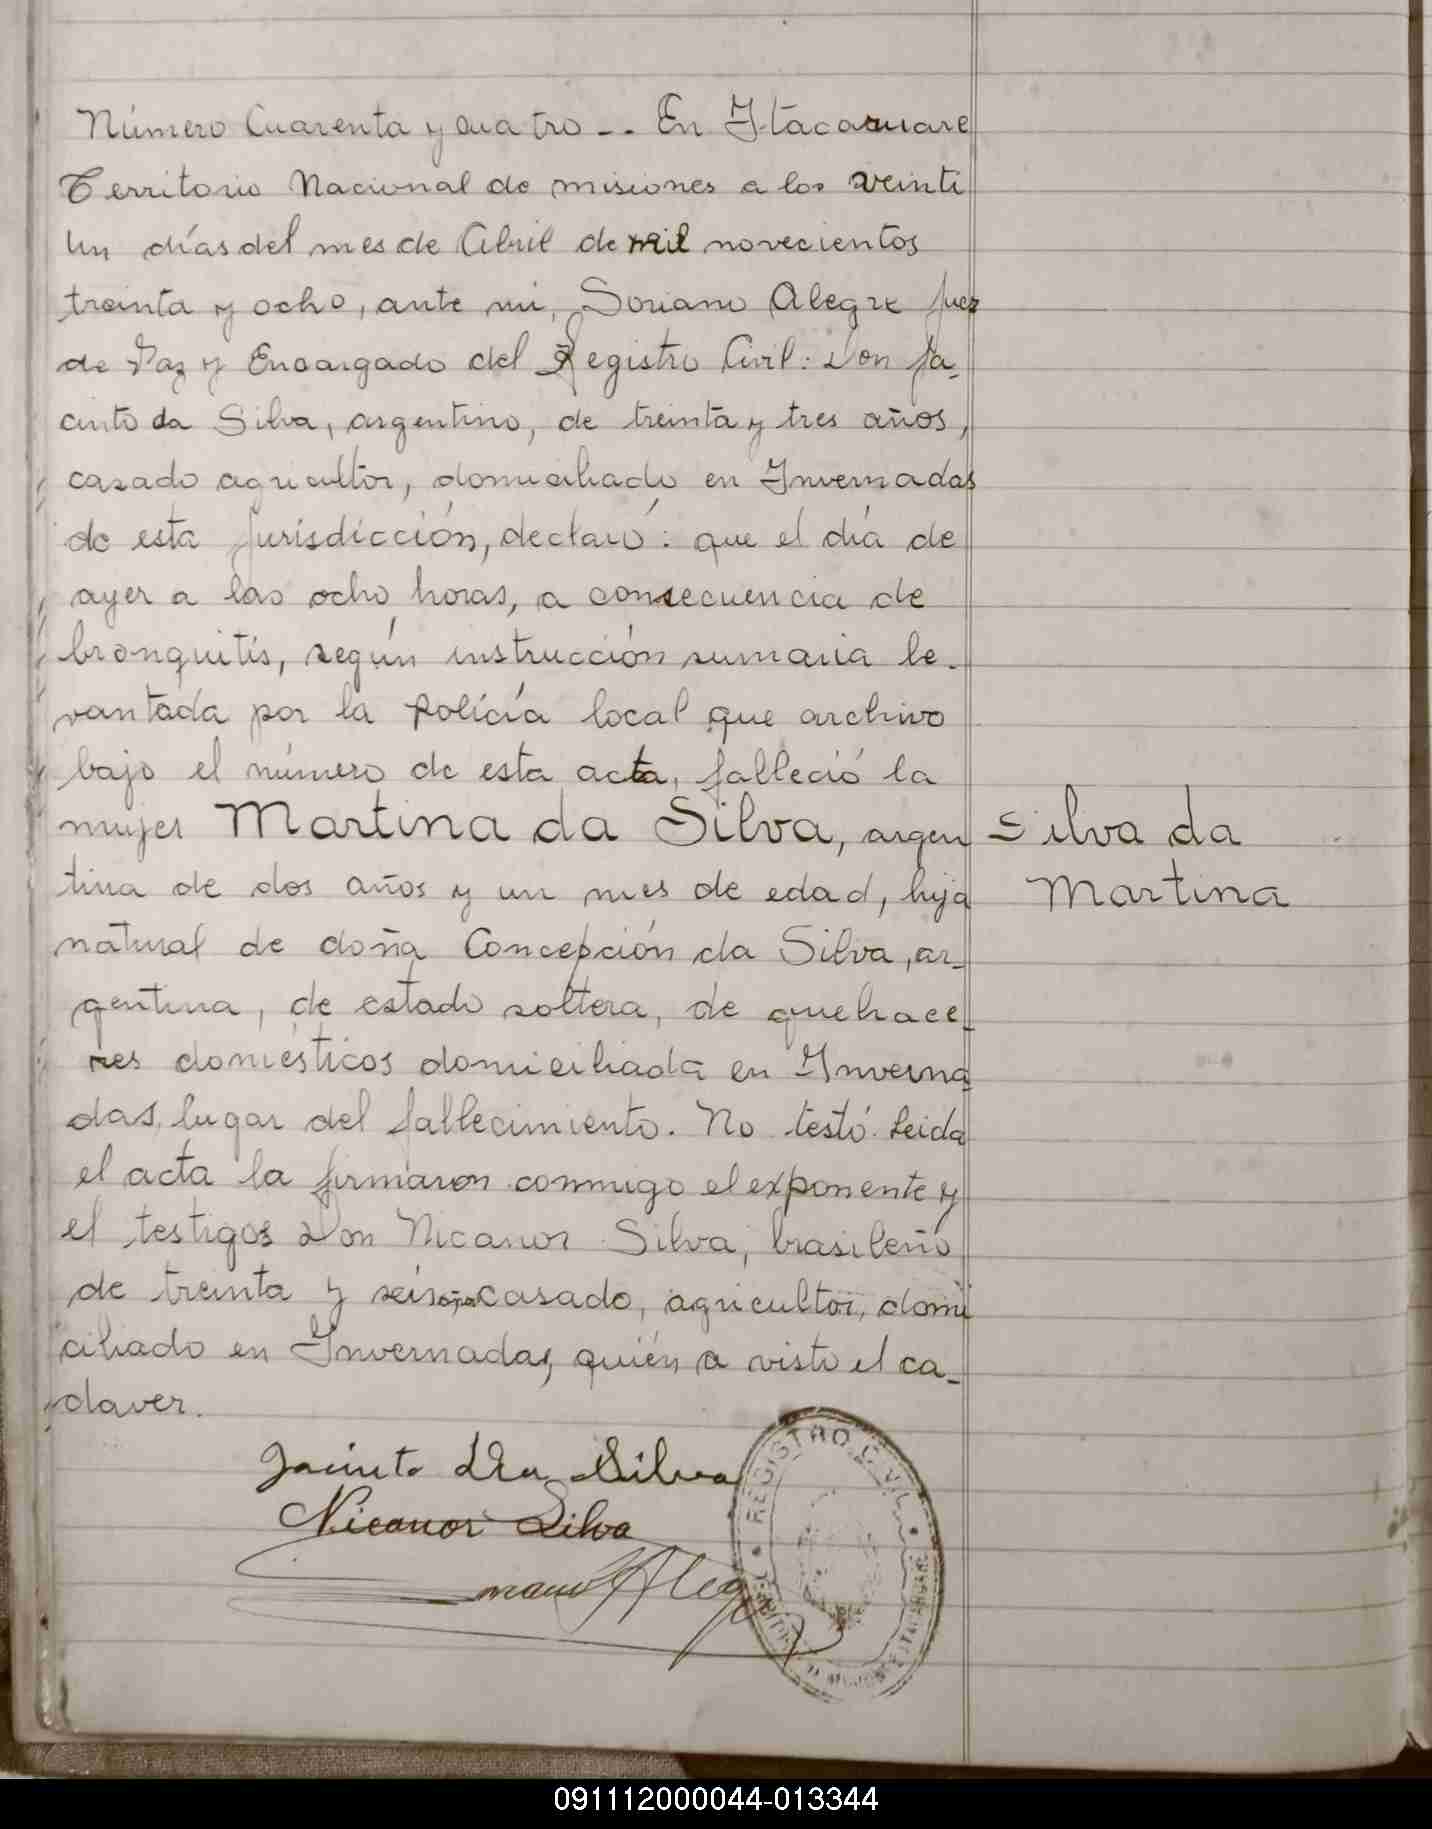 Número Cuarenta y cuatro -- En Itacaruare
Territorio Nacional de misiones a los veinti
un días del mes de Abril de mil novecientos
treinta y ocho, ante mi, Soriano Alegre Juez
de Paz y Encargado del Registro Civil: Don Ja-
cinto da Silva, argentino, de treinta y tres años,
casado agricultor, domiciliado en Invernadas
de esta jurisdicción, declaró: que el día de
ayer a las ocho horas, a consecuencia de
bronquitis, según instrucción sumaria le-
vantada por la Policía local que archivo
bajo el número de esta acta, falleció la
mujer Martina da Silva, argen
tina de dos años y un mes de edad, hija
natural de doña Concepción da Silva, ar-
gentina, de estado soltera, de quehace-
res domésticos domiciliada en Inverna
das, lugar del fallecimiento. No testó. Leida
el acta la firmaron conmigo el exponente y
el testigos Don Nicanor Silva, brasileño
de treinta y seis años casado, agricultor, domi
ciliado en Invernadas, quién a visto el ca-
daver.
Silva da
Martina
Jacinto Da Silva
Nicanor Silva
Alegre
REGISTRO CIVIL
091112000044-013344